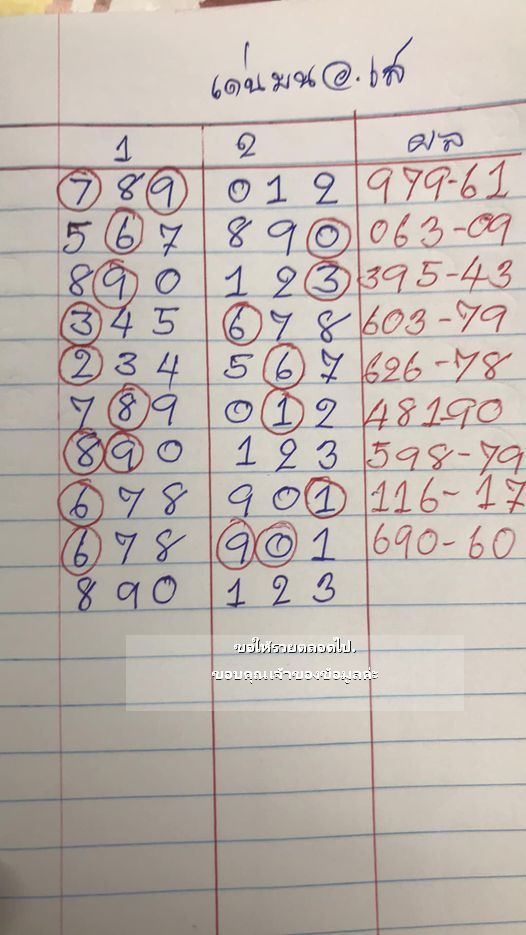 เด่นบนอ.เส
1 2 ผล
7 8 9 0 1 2 979-61
5 6 7 8 9 0 063-09
8 9 0 1 2 3 395-43
3 4 5 6 7 8 603-79
2 3 4 5 6 7 626-78
7 8 9 0 1 2 48190
8 9 0 1 2 3 598-79
6 7 8 9 0 1 116-17
6 7 8 9 0 1 690-60
8 9 0 1 2 3
ขอให้รวยตลอดไป.
ขอบคุณเจ้าของข้อมูลค่ะ